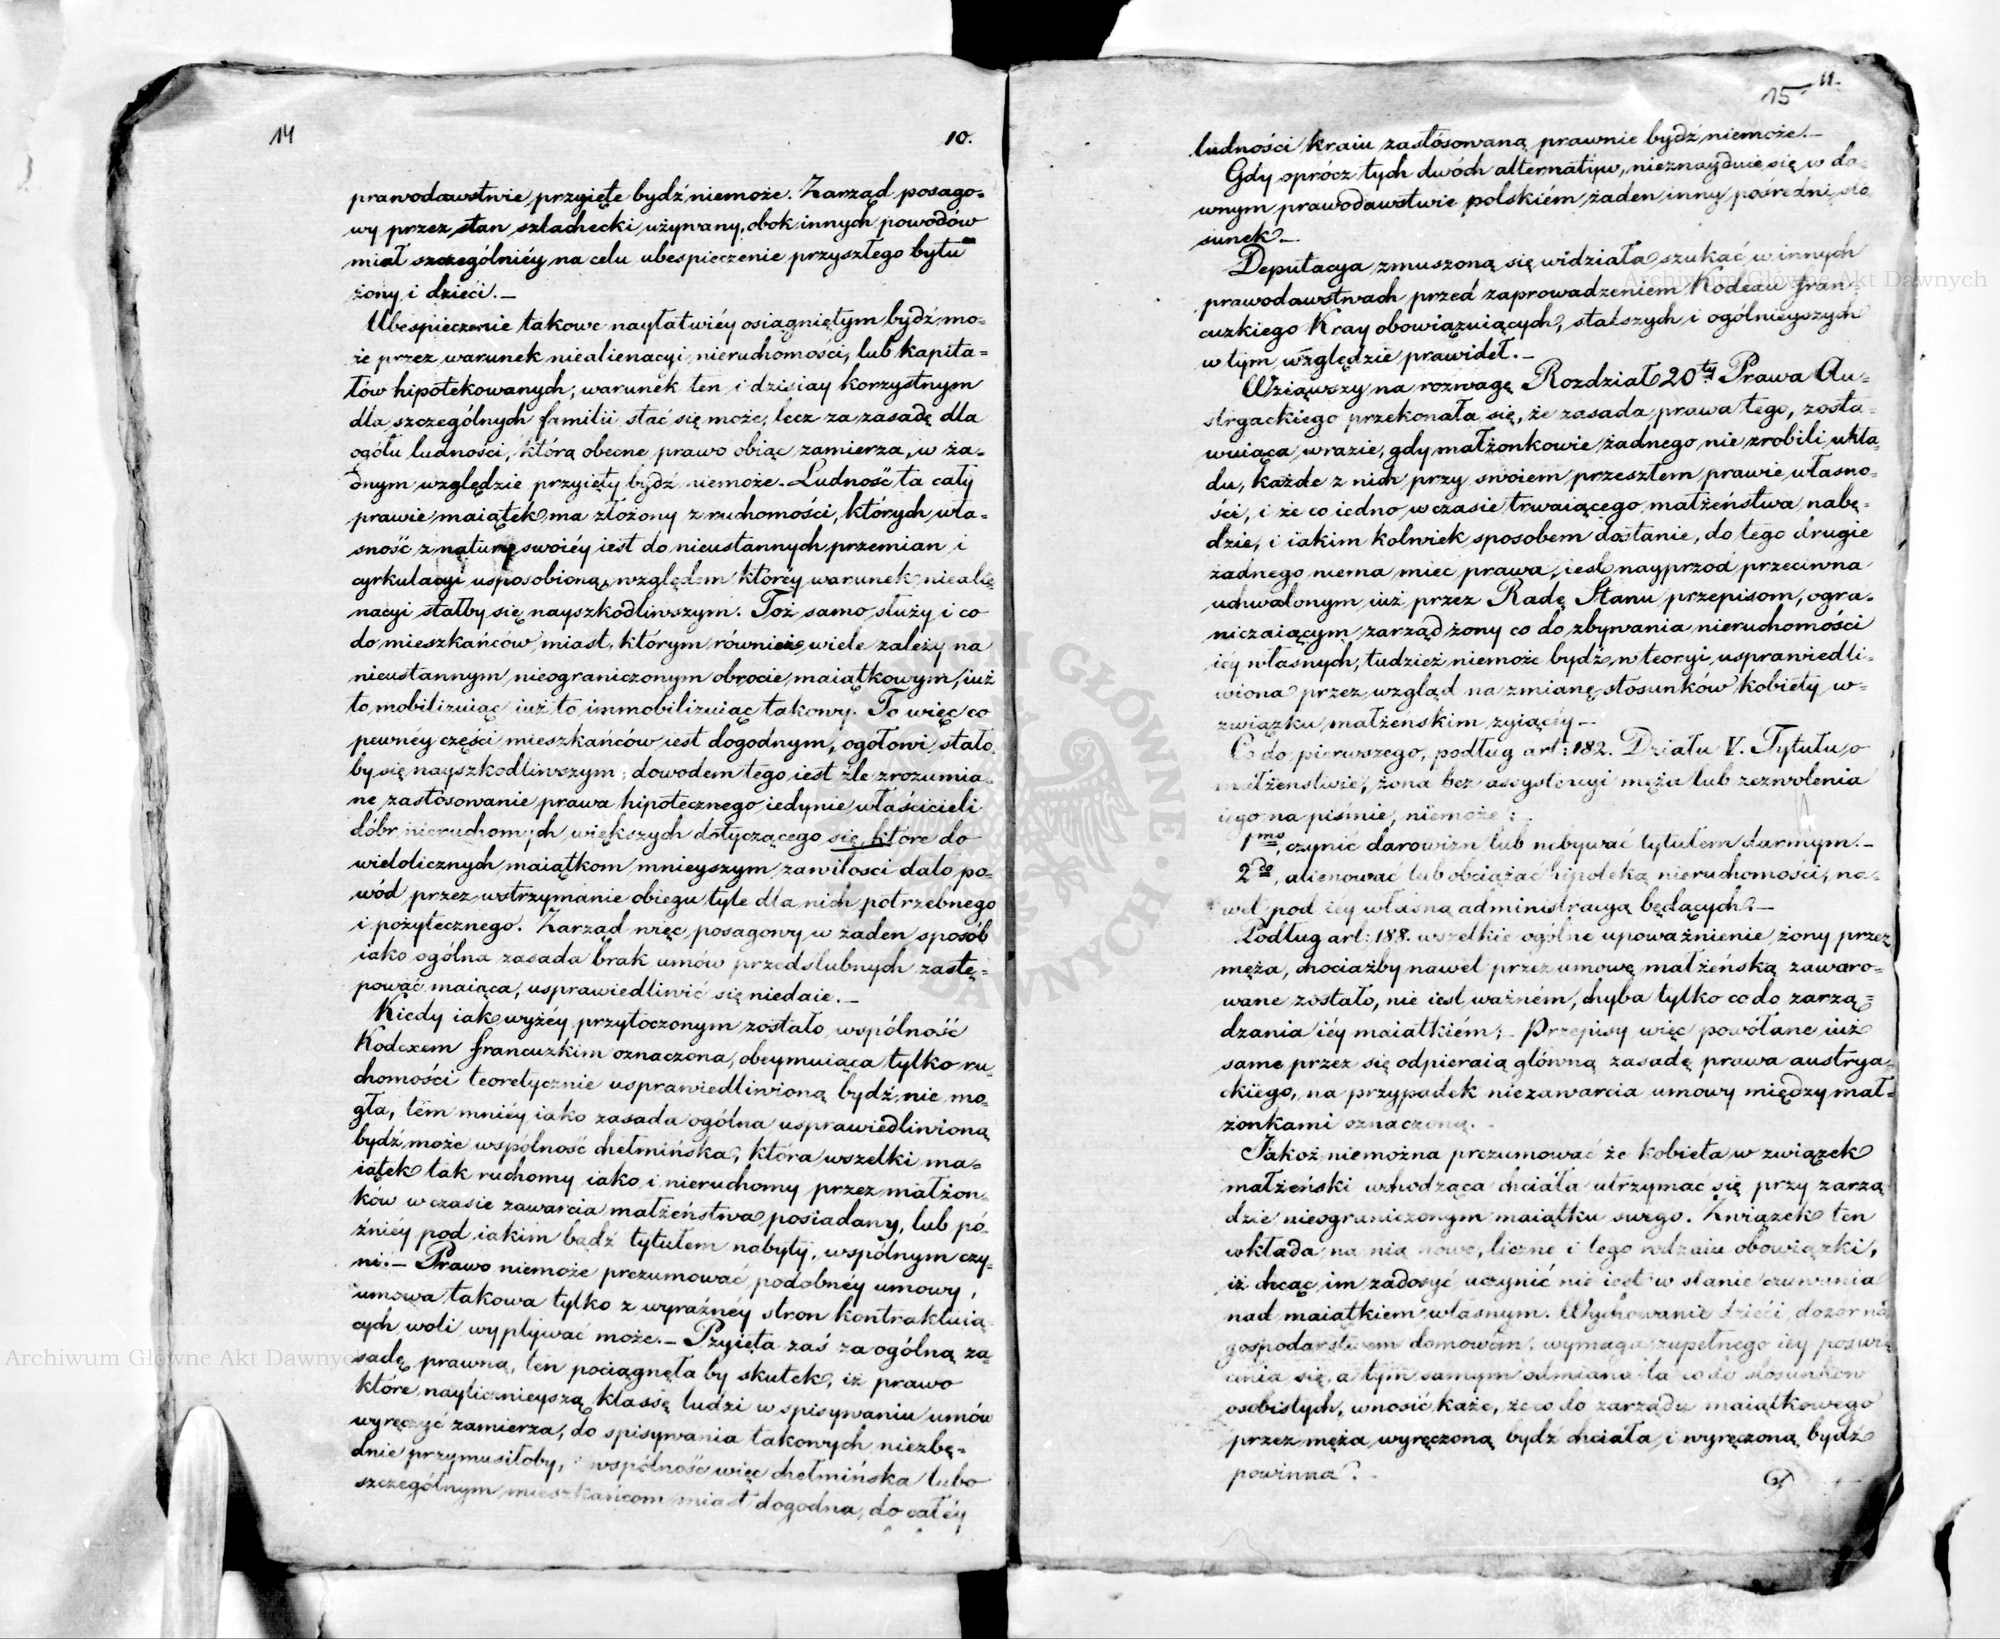 14
10.
prawodawstwie przyięte bydź niemoże. Zarząd posago=
wy przez stan szlachecki używany, obok innych powodów
miał szczególniéy na celu ubespieczenie przyszłego bytu
żony i dzieci. —
Ubespieczenie takowe nayłatwiéy osiągniętym bydź mo=
że przez warunek niealienacyi nieruchomości, lub kapita=
łów hipotekowanych; warunek ten i dzisiay korzystnym
dla szczególnych familii stać się może, lecz za zasadę dla
ogółu ludności, którą obecne prawo obiąć zamierza, w ża=
dnym względzie przyięty bydź niemoże. Ludność ta cały
prawie maiątek ma złożony z ruchomości, których wła=
sność z natury swoiéy iest do nieustannych przemian i
cyrkulacyi usposobioną, względem któréy warunek niealie
nacyi stałby się nayszkodliwszym. Toż samo służy i co
do mieszkańców miast, którym również wiele zależy na
nieustannym, nieograniczonym obrocie maiątkowym, iuż
to mobilizuiąc iuż to immobilizuiąc takowy. To więc co
pewnéy części mieszkańców iest dogodnym, ogółowi stało
by się nayszkodliwszym; dowodem tego iest źle zrozumia=
ne zastosowanie prawa hipotecznego iedynie właścicieli
dóbr nieruchomych większych dotyczącego się, które do
wielolicznych maiątkom mnieyszym zawiłosci dało po=
wód przez wstrzymanie obiegu tyle dla nich potrzebnego
i pożytecznego. Zarząd więc posagowy w żaden sposób
iako ogólna zasada brak umów przedślubnych zastę=
pować maiąca, usprawiedliwić się niedaie. —
Kiedy iak wyżéy przytoczonym zostało wspólność
Kodexem francuzkim oznaczona, obeymuiąca tylko ru=
chomości teoretycznie usprawiedliwioną bydź nie mo=
gła, tém mniéy iako zasada ogólna usprawiedliwioną
bydź może wspólność chełmińska, która wszelki ma=
iątek tak ruchomy iako i nieruchomy przez małżon=
ków w czasie zawarcia małżeństwa posiadany, lub pó=
źniéy pod iakim bądź tytułem nabyty, wspólnym czy=
ni. — Prawo niemoże prezumować podobnéy umowy,
umowa takowa tylko z wyraźnéy stron kontraktuią=
cych woli wypływać może. — Przyięta zaś za ogólną za=
sadę prawną, ten pociągnęła by skutek, iż prawo
które nayliczniéyszą klassę ludzi w spisywaniu umów
wyręczyć zamierza, do spisywania takowych niezbę=
dnie przymusiłoby, wspólność więc chełmińska lubo
szczególnym mieszkańcom miast dogodna, do całéy
15 11.
ludności kraiu zastósowaną prawnie bydź niemoże. —
Gdy oprócz tych dwóch alternatyw, nieznayduie się w da=
wnym prawodawstwie polskiém żaden inny pośredni sto
sunek. —
Deputacya zmuszoną się widziała szukać w innych
prawodawstwach przed zaprowadzeniem Kodexu fran=
cuzkiego Kray obowiązuiących, stalszych i ogólnieyszych
w tym względzie prawideł. —
Wziąwszy na rozwagę Rozdział 20ty Prawa Au=
stryackiego przekonała się, że zasada prawa tego, zosta=
wuiąca w razie, gdy małżonkowie żadnego nie zrobili ukła=
du, każde z nich przy swoiem przeszłem prawie własno=
ści, i że co iedno w czasie trwaiącego małżeństwa nabę=
dzie, i iakim kolwiek sposobem dostanie, do tego drugie
żadnego niema miec prawa, iest nayprzod przeciwna
uchwalonym iuż przez Radę Stanu przepisom, ogra=
niczaiącym zarząd żony co do zbywania nieruchomości
iéy własnych, tudzież niemoże bydź w teoryi usprawiedli=
wiona przez wzgląd na zmianę stósunków kobiety w=
związku małżeńskim żyiącéy —
Co do pierwszego, podług art: 182. Działu V. Tytułu o
małżenstwie, żona bez assystencyi męża lub zezwolenia
iego na piśmie, niemoże:
1mo, czynić darowizn lub nabywać tytułem darmym. —
2do, alienować lub obciążać hipoteką nieruchomości, na=
wet pod iéy własną administracyą będących. —
Podług art: 188. wszelkie ogólne upoważnienie żony przez
męża, chociażby nawet przez umowę małżeńską zawaro=
wane zostało, nie iest ważném, chyba tylko co do zarzą=
dzania iéy maiątkiém; Przepisy więc powołane iuż
same przez się odpieraią główną zasadę prawa austrya=
ckiego, na przypadek niezawarcia umowy między mał=
żonkami oznaczoną. —
Jakoż niemożna prezumować że kobieta w związek
małżeński wchodząca chciała utrzymac się przy zarzą=
dzie nieograniczonym maiątku swego. Związek ten
wkłada na nią nowe, liczne i tego rodzaiu obowiązki,
iż chcąc im zadosyć uczynić nie iest w stanie czuwania
nad maiątkiem własnym. Wychowanie dzieci, dozor na
gospodarstwem domowém, wymaga zupełnego iéy poswię
cenia się, a tym samym odmiana ta co do stosunkow
osobistych, wnosić każe, że co do zarządu maiątkowego
przez męża wyręczoną bydź chciała, i wyręczoną bydź
powinna. —
Archiwum Główne Akt Dawnych
Archiwum Główne Akt Dawnych